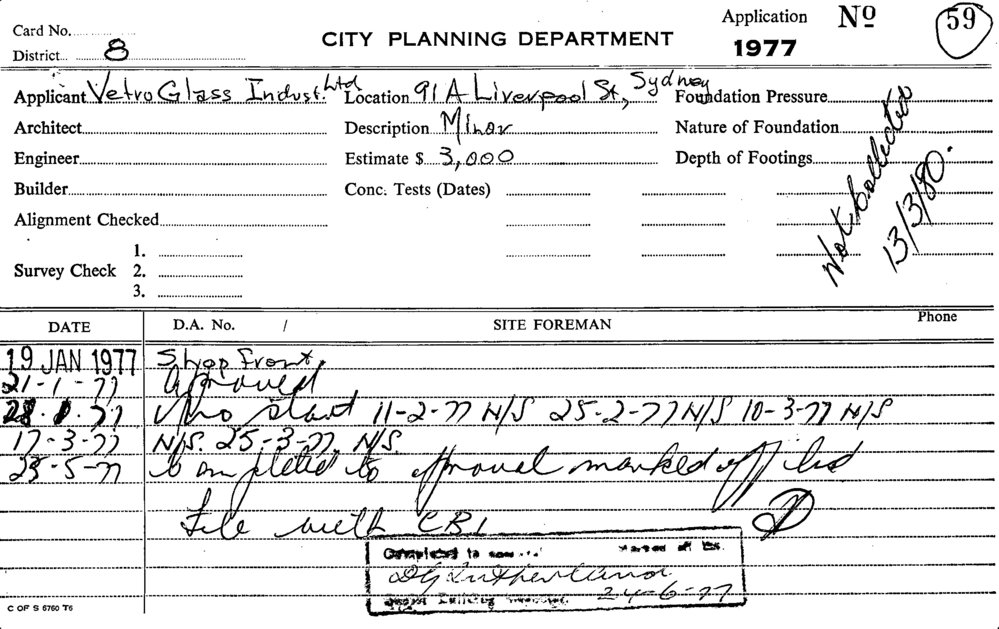 Card No.
Application Nº 59
District 8
CITY PLANNING DEPARTMENT
1977
Applicant Vetro Glass Indust. Ltd Location 91A Liverpool St., Sydney Foundation Pressure
Architect Description Minor Nature of Foundation
Engineer Estimate $ 3,000 Depth of Footings
Builder Conc. Tests (Dates)
Alignment Checked
Not Collected
13/3/80.
Survey Check 1.
2.
3.
DATE D.A. No. / SITE FOREMAN Phone
19 JAN 1977 Shop Front
21-1-77 Approved
28 77 No start 11-2-77 N/S 25-2-77 N/S 10-3-77 N/S
17-3-77 N/S. 25-3-77. N/S.
23-5-77 Completed to approval marked off list
File with CBI
Completed to
24-6-77
C OF S 6760 T6